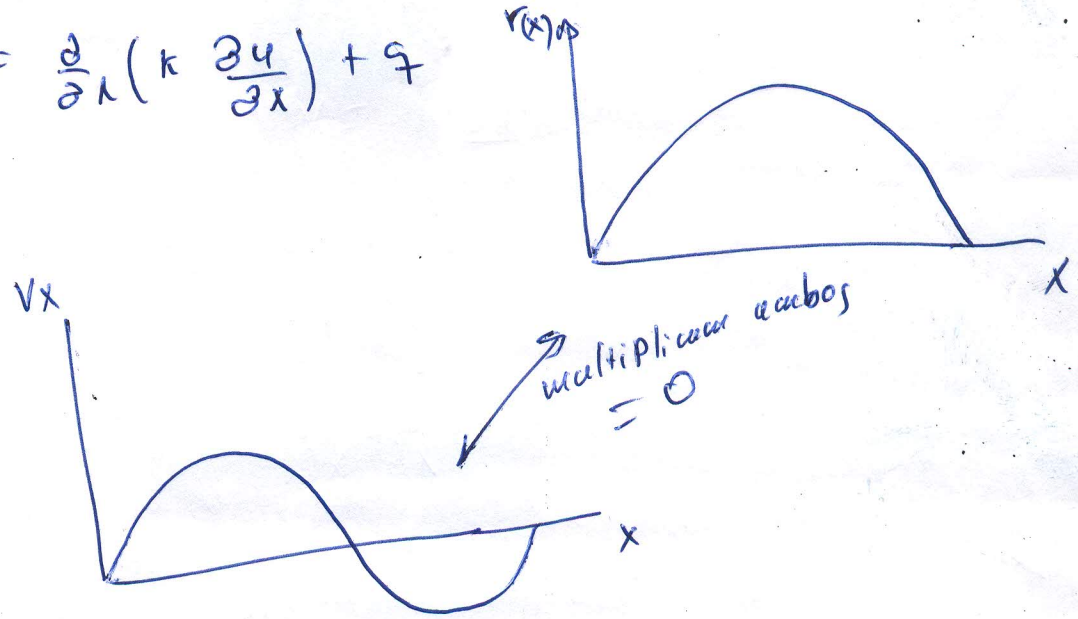 = ∂/∂x ( k ∂u/∂x ) + q
r(x)
x
Vx
multiplicar ambos
= 0
x